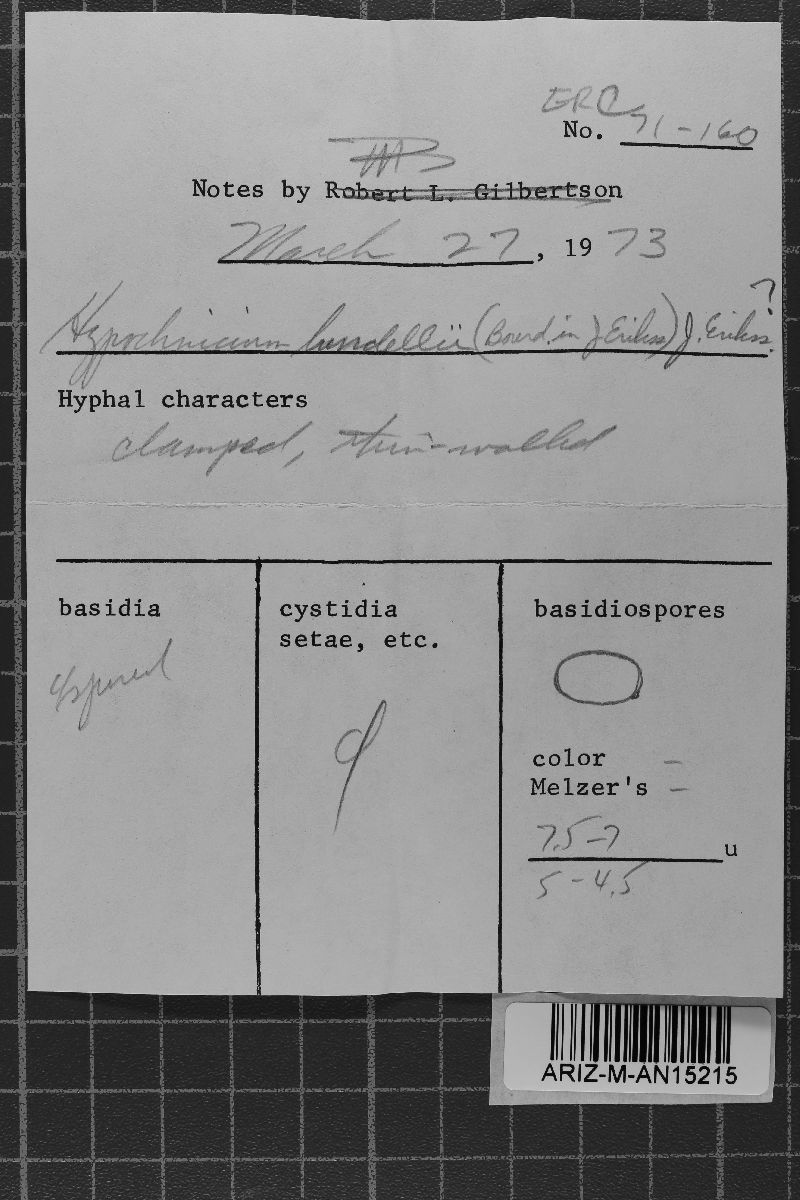 GRC
No. 71-160
Notes by Robert L. Gilbertson
March 27, 1973
?
Hypochnicium lundellii (Bourd. in J Erikss) J. Erikss.
Hyphal characters
clamped, thin-walled
basidia
4 spored
cystidia
setae, etc.
basidiospores
color –
Melzer's –
7.5-7 u
5-4.5
ARIZ-M-AN15215